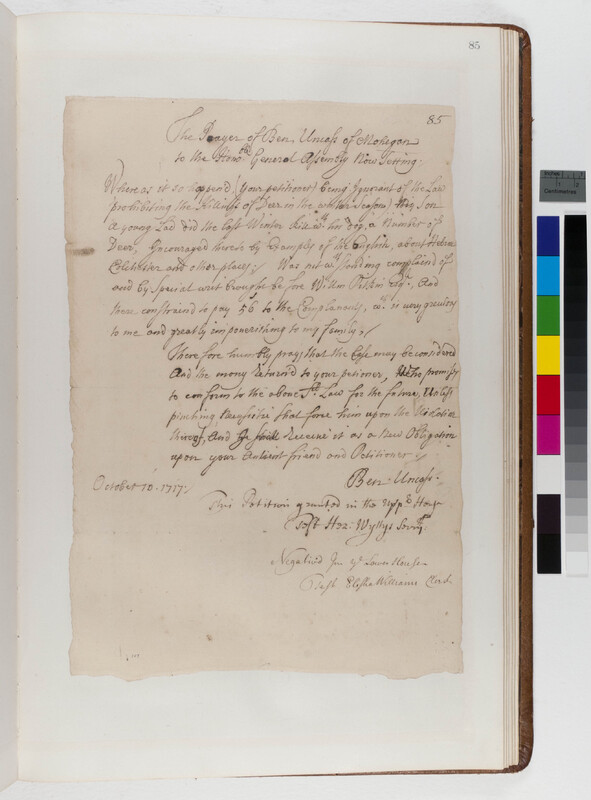 85
85
The Prayer of Ben Uncass of Mohegan
to the Honobl General Assembly Now Setting:
Where as it so hapend (your petitioner being Ignorant of the Law
prohibiting the Killing of Deer in the whilst season) My Son
a young Lad did the last Winter kill wth his dog, a Number of
Deer, Encouraged hereto by Example of the English, about Hebron
Colchester and other places: Was not wth standing complaind of
and by special writ brought be fore Willm Pitkin Esqr. And
there constraind to pay 56 to the Complanants, wch is very greivous
to me and greatly impoverishing to my family;
Therefore humbly prays that the Case may be considered
And the mony Returnd to your petioner, who promiseth
to conform to the above sd Law for the future, Unless
pinching Necessitie shal force him upon the Violation
thereof, And he shall Receive it as a New Obligation
upon your Antient friend and Petitioner
Ben: Uncass:
October 10. 1717:
This Petition granted in the uppr House
Test Hez: Wyllys Secry
Negatived In ye Lower House
Test Elisha Williams Clerk
Centimetres